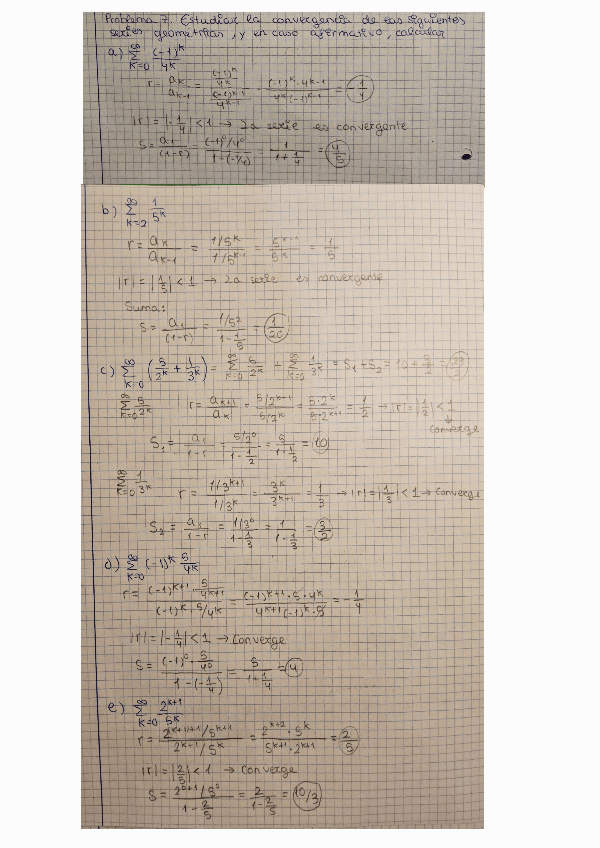 Problema 7. Estudiar la convergencia de las siguientes
series geométricas, y en caso afirmativo, calcular
a) ∑_{k=0}^{∞} (-1)^k / 4^k
r = a_k / a_{k-1} = ((-1)^k / 4^k) / ((-1)^{k-1} / 4^{k-1}) = (-1)^k · 4^{k-1} / 4^k (-1)^{k-1} = -1/4
|r| = |-1/4| < 1 → La serie es convergente
S = a_1 / (1-r) = ((-1)^0 / 4^0) / (1-(-1/4)) = 1 / (1 + 1/4) = 4/5
b) ∑_{k=2}^{∞} 1 / 5^k
r = a_k / a_{k-1} = (1/5^k) / (1/5^{k-1}) = 5^{k-1} / 5^k = 1/5
|r| = |1/5| < 1 → La serie es convergente
Suma:
S = a_1 / (1-r) = (1/5^2) / (1 - 1/5) = 1/20
c) ∑_{k=0}^{∞} (5/2^k + 1/3^k) = ∑_{k=0}^{∞} 5/2^k + ∑_{k=0}^{∞} 1/3^k = S_1 + S_2 = 10 + 3/2 =
∑_{k=0}^{∞} 5/2^k r = a_{k+1} / a_k = (5/2^{k+1}) / (5/2^k) = 5·2^k / 5·2^{k+1} = 1/2 → |r| = |1/2| < 1
↓
Converge
S_1 = a_1 / (1-r) = (5/2^0) / (1 - 1/2) = 5 / (1 + 1/2) = 10
∑_{k=0}^{∞} 1/3^k r = (1/3^{k+1}) / (1/3^k) = 3^k / 3^{k+1} = 1/3 → |r| = |1/3| < 1 → Converge
S_2 = a_1 / (1-r) = (1/3^0) / (1 - 1/3) = 1 / (1 - 1/3) = 3/2
d) ∑_{k=0}^{∞} (-1)^k 5/4^k
r = ((-1)^{k+1} · 5/4^{k+1}) / ((-1)^k · 5/4^k) = (-1)^{k+1} · 5 · 4^k / 4^{k+1} (-1)^k · 5 = -1/4
|r| = |-1/4| < 1 → Converge
S = ((-1)^0 · 5/4^0) / (1 - (-1/4)) = 5 / (1 + 1/4) = 4
e) ∑_{k=0}^{∞} 2^{k+1} / 5^k
r = (2^{(k+1)+1} / 5^{k+1}) / (2^{k+1} / 5^k) = 2^{k+2} · 5^k / 5^{k+1} · 2^{k+1} = 2/5
|r| = |2/5| < 1 → Converge
S = (2^{0+1} / 5^0) / (1 - 2/5) = 2 / (1 - 2/5) = 10/3